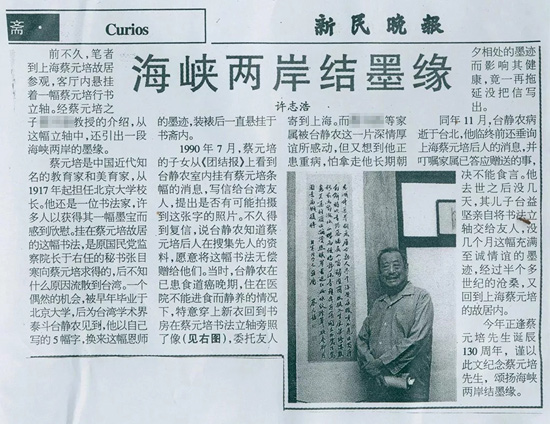 斋·
Curios
新民晚报
海峡两岸结墨缘
许志浩
前不久，笔者
到上海蔡元培故居
参观，客厅内悬挂
着一幅蔡元培行书
立轴。经蔡元培之
子教授的介绍，从
这幅立轴中，还引出一段
海峡两岸的墨缘。
蔡元培是中国近代知
名的教育家和美育家，从
1917年起担任北京大学校
长。他还是一位书法家，许
多人以获得其一幅墨宝而
感到欣慰。挂在蔡元培故居
的这幅书法，是原国民党监
察院长于右任的秘书张目
寒向蔡元培求得的，后不知
什么原因流散到台湾。一个
偶然的机会，被早年毕业于
北京大学，后为台湾学术界
泰斗台静农见到，他以自己
写的5幅字，换来这幅恩师
的墨迹，装裱后一直悬挂于
书斋内。
1990年7月，蔡元培
的子女从《团结报》上看到
台静农室内挂有蔡元培条
幅的消息，写信给台湾友
人，提出是否有可能拍摄
到这张字的照片。不久得
到复信，说台静农知道蔡
元培后人在搜集先人的资
料，愿意将这幅书法无偿
赠给他们。当时，台静农在
已患食道癌晚期，住在医
院不能进食而静养的情况
下，特意穿上新衣回到书
房在蔡元培书法立轴旁照
了像(见右图)，委托友人
寄到上海。而等家
属被台静农这一片深情厚
谊所感动，但又想到他正
患重病，怕拿走他长期朝
夕相处的墨迹
而影响其健
康，竟一再拖
延没把信写
出。
同年11月，台静农病
逝于台北，他临终前还垂询
上海蔡元培后人的消息，并
叮嘱家属已答应赠送的事，
决不能食言。他
去世之后没几
天，其儿子台益
坚亲自将书法立
轴交给友人，没
几个月这幅充满
至诚情谊的墨
迹，经过半个多
世纪的沧桑，又
回到上海蔡元培
的故居内。
今年正逢蔡
元培先生诞辰
130周年，谨以
此文纪念蔡元培
先生，颂扬海峡
两岸结墨缘。